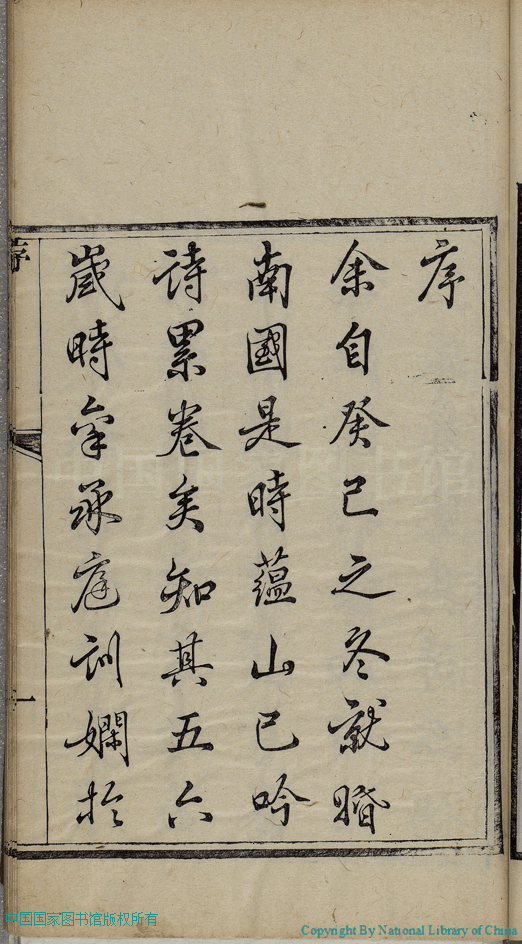 序
余自癸巳之冬就婚
南國是時蘊山已吟
詩累卷矣知其五六
歲時常承庭訓嫻於
序
一
中国国家图书馆
中国国家图书馆版权所有
Copyright By National Library of China